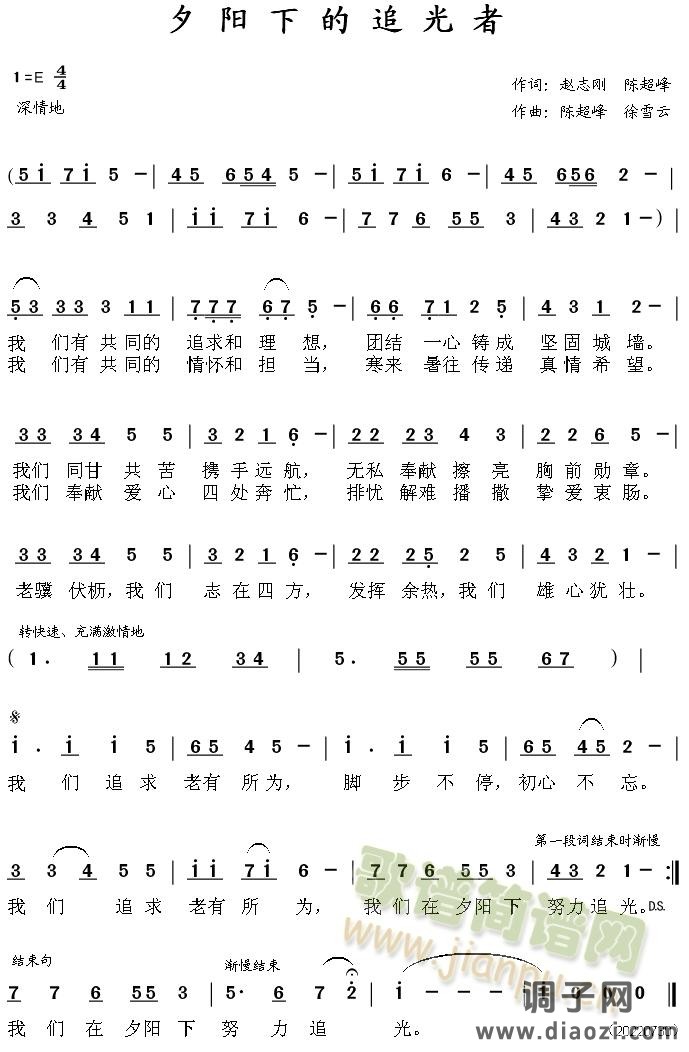 夕阳下的追光者
1=E 4/4
作词: 赵志刚 陈超峰
深情地
作曲: 陈超峰 徐雪云
(5i 7i 5 - | 45 654 5 - | 5i 7i 6 - | 45 656 2 - |
3 3 4 5 1 | ii 7i 6 - | 7 7 6 55 3 | 43 2 1 -) |
53 33 3 11 | 777 67 5 - | 66 71 2 5 | 4 3 1 2 - |
我 们有 共 同的 追求和 理 想, 团结 一心 铸 成 坚 固 城 墙。
我 们有 共 同的 情怀和 担 当, 寒来 暑往 传 递 真 情 希 望。
33 34 5 5 | 3 2 1 6 - | 22 23 4 3 | 2 2 6 5 - |
我们 同甘 共 苦 携 手 远 航, 无私 奉献 擦 亮 胸 前 勋 章。
我们 奉献 爱 心 四 处 奔 忙, 排忧 解难 播 撒 挚 爱 衷 肠。
33 34 5 5 | 3 2 1 6 - | 22 25 2 5 | 4 3 2 1 - |
老骥 伏枥, 我 们 志 在 四 方, 发挥 余热, 我 们 雄 心 犹 壮。
转快速、充满激情地
( 1. 11 12 34 | 5. 55 55 67 ) |
i. i i 5 | 65 4 5 - | i. i i 5 | 65 45 2 - |
我 们 追 求 老有 所 为, 脚 步 不 停, 初心 不 忘。
第一段词结束时渐慢
3 3 4 5 5 | ii 7i 6 - | 7 7 6 55 3 | 43 2 1 - :||
我 们 追 求 老有 所 为, 我 们 在 夕阳 下 努 力 追 光。 D.S.
结束句 渐慢结束
7 7 6 55 3 | 5. 6 7 2 | i - - - | i 0 0 0 ||
我 们 在 夕阳 下 努 力 追 光。
歌谱简谱网
www.jianpu.cn
调子网
www.diaozi.com